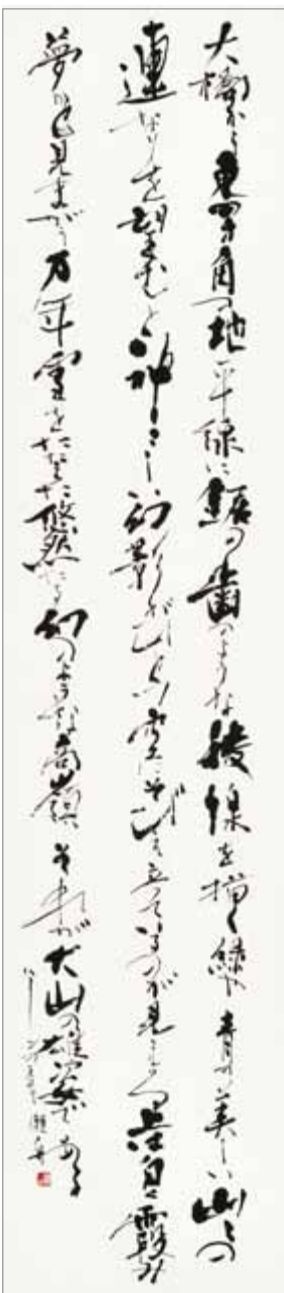 大橋から東方角の地平線に鋸の歯のような稜線を描く緑や青の美しい山々の
連なりを望むと神々しい幻影がひとつ空にそびえ立っているのが見える
夢かと見まがう万年雪をいただいた悠然たる幻のような高嶺それが大山の雄姿である